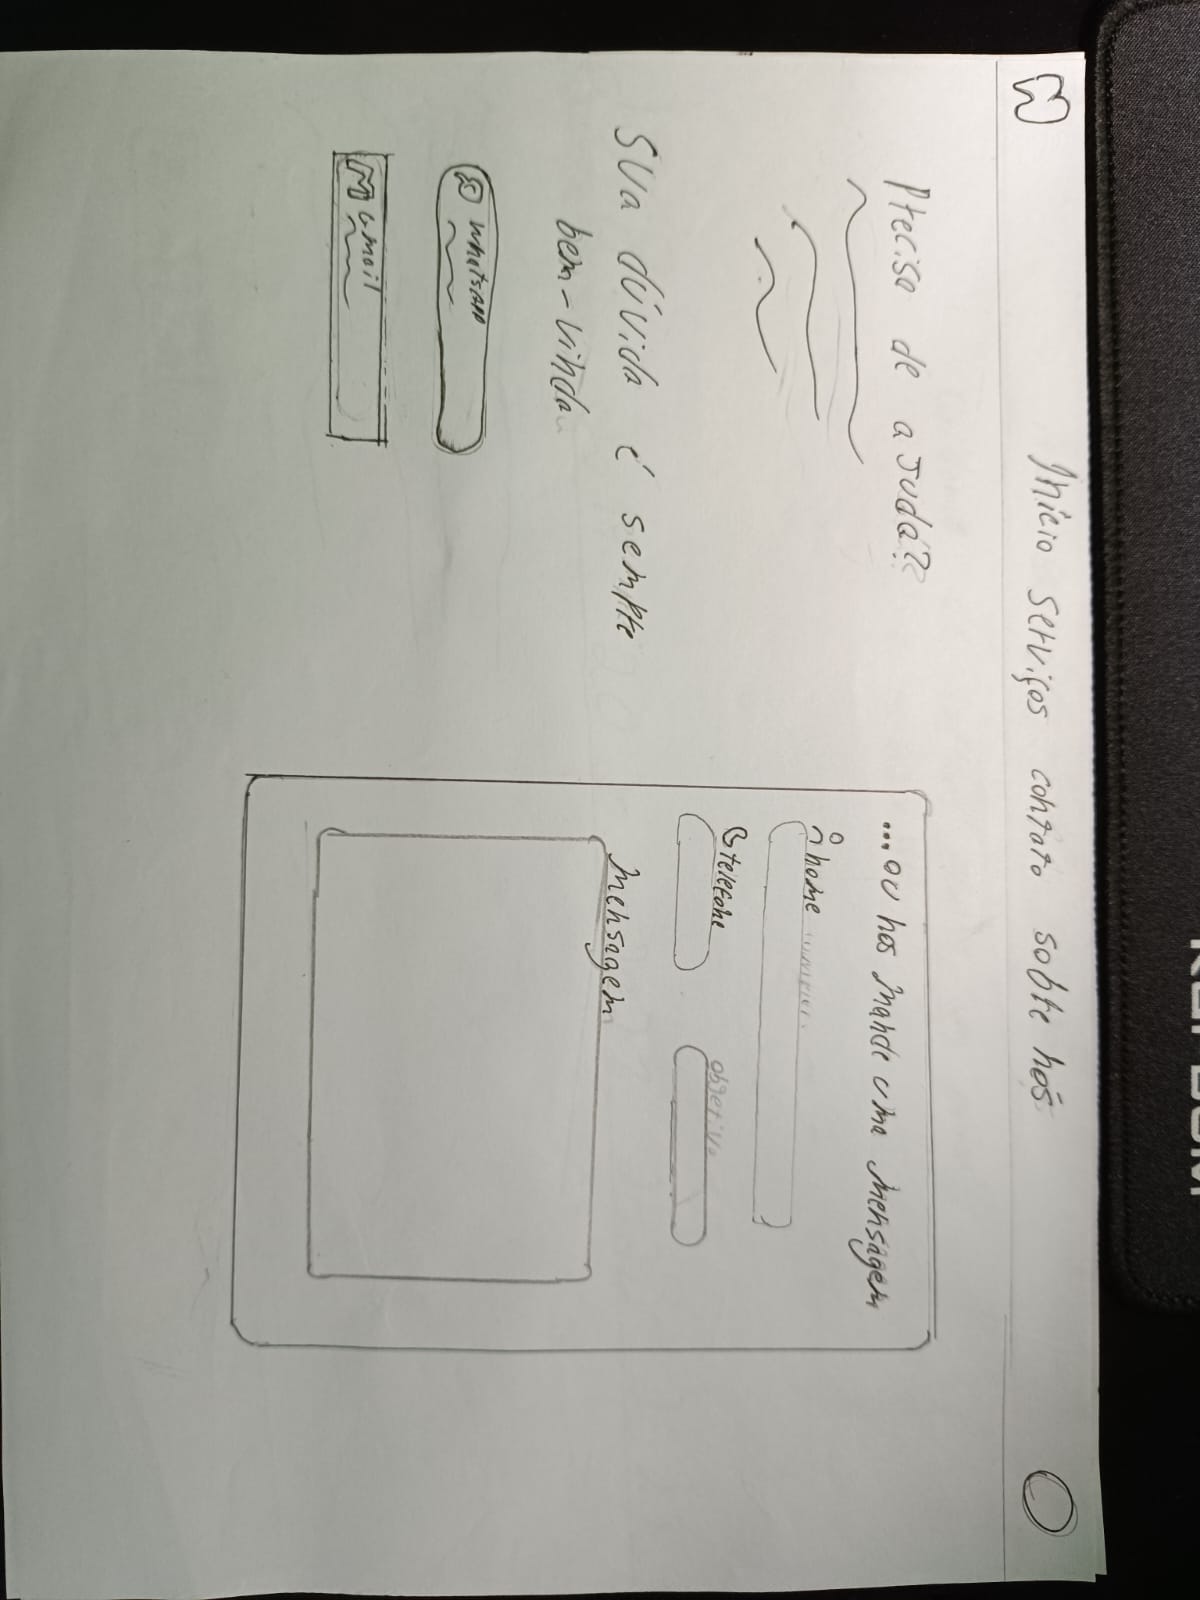 Início serviços contato sobre nós
Preciso de ajuda??
Sua dúvida é sempre
bem-vinda
whatsapp
email
...ou nos mande uma mensagem
nome
telefone
objetivo
mensagem